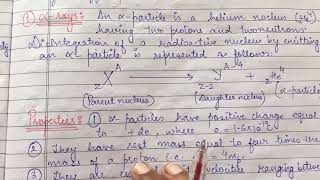 ① α-rays: An α-particle is a helium nucleus (₂He⁴)
having two protons and two neutrons.
Disintegration of a radioactive nucleus by emitting
an α-particle is represented as follows:
ZXᴬ → Z-2Yᴬ⁻⁴ + ₂He⁴
(Parent nucleus) (Daughter nucleus) (α-particle
Properties: ① α-particles have positive charge equal
to +2e, where e = 1.6×10
② They have rest mass equal to four times the
mass of a proton i.e. = 4mₚ
③ They are velocities ranging between